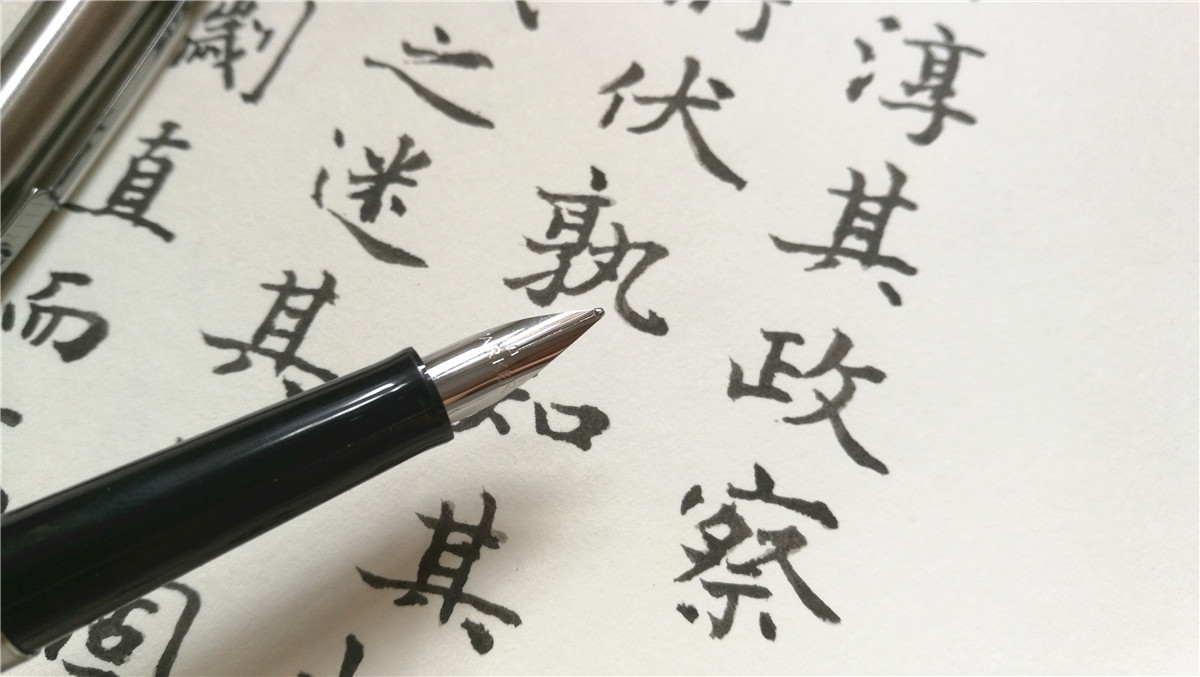 淳其政察
伏孰知其
之迷其固
劌直而